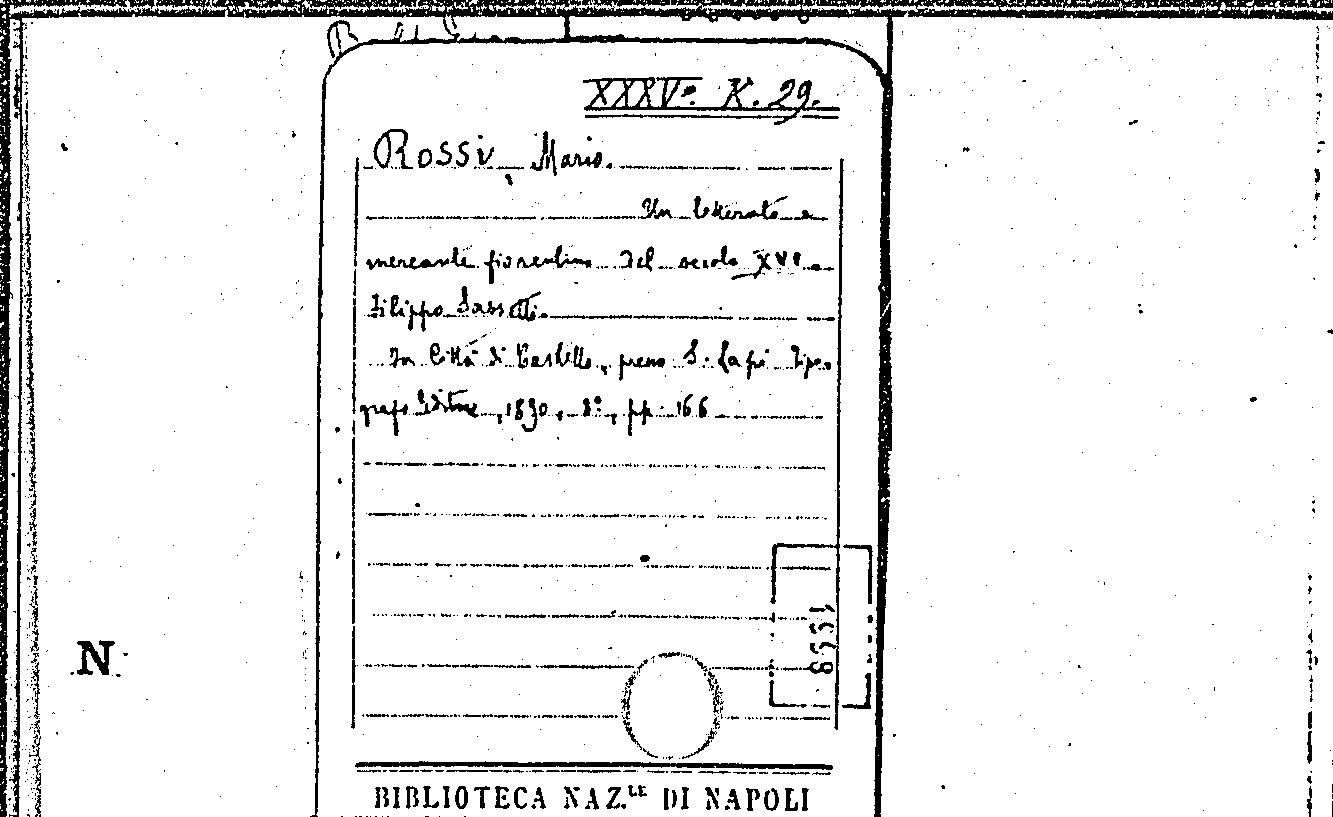 XXXVª. K. 29.
Rossi, Mario.
Un letterato e
mercante fiorentino del secolo XVI.
Filippo Sassetti.
In Città di Castello, presso S. Lapi Tipo-
grafo Editore, 1890, 8º, pp. 166
N
BIBLIOTECA NAZ.LE DI NAPOLI